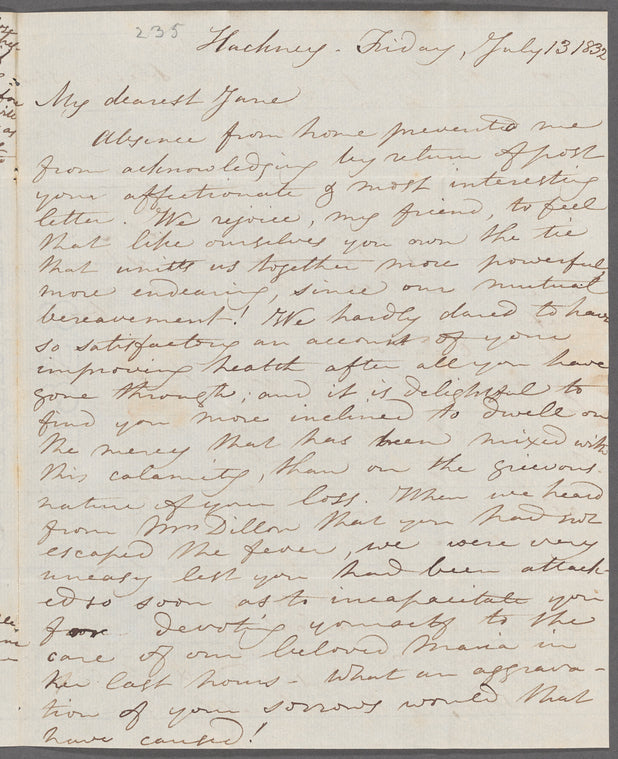 235
Hackney - Friday, July 13 1832
My dearest Jane
Absence from home prevented me
from acknowledging by return of post
your affectionate & most interesting
letter. We rejoice, my friend, to feel
that like ourselves you own the tie
that unites us together more powerful,
more endearing, since our mutual
bereavement! We hardly dared to have
so satisfactory an account of your
improving health after all you have
gone through; and it is delightful to
find you more inclined to dwell on
the mercy that has been mixed with
this calamity, than on the grievous
nature of your loss. When we heard
from Mrs Dillon that you had not
escaped the fever, we were very
uneasy lest you had been attack-
ed so soon as to incapacitate you
devoting yourself to the
care of our beloved Maria in
her last hours - What an aggrava-
tion of your sorrows would that
have caused!